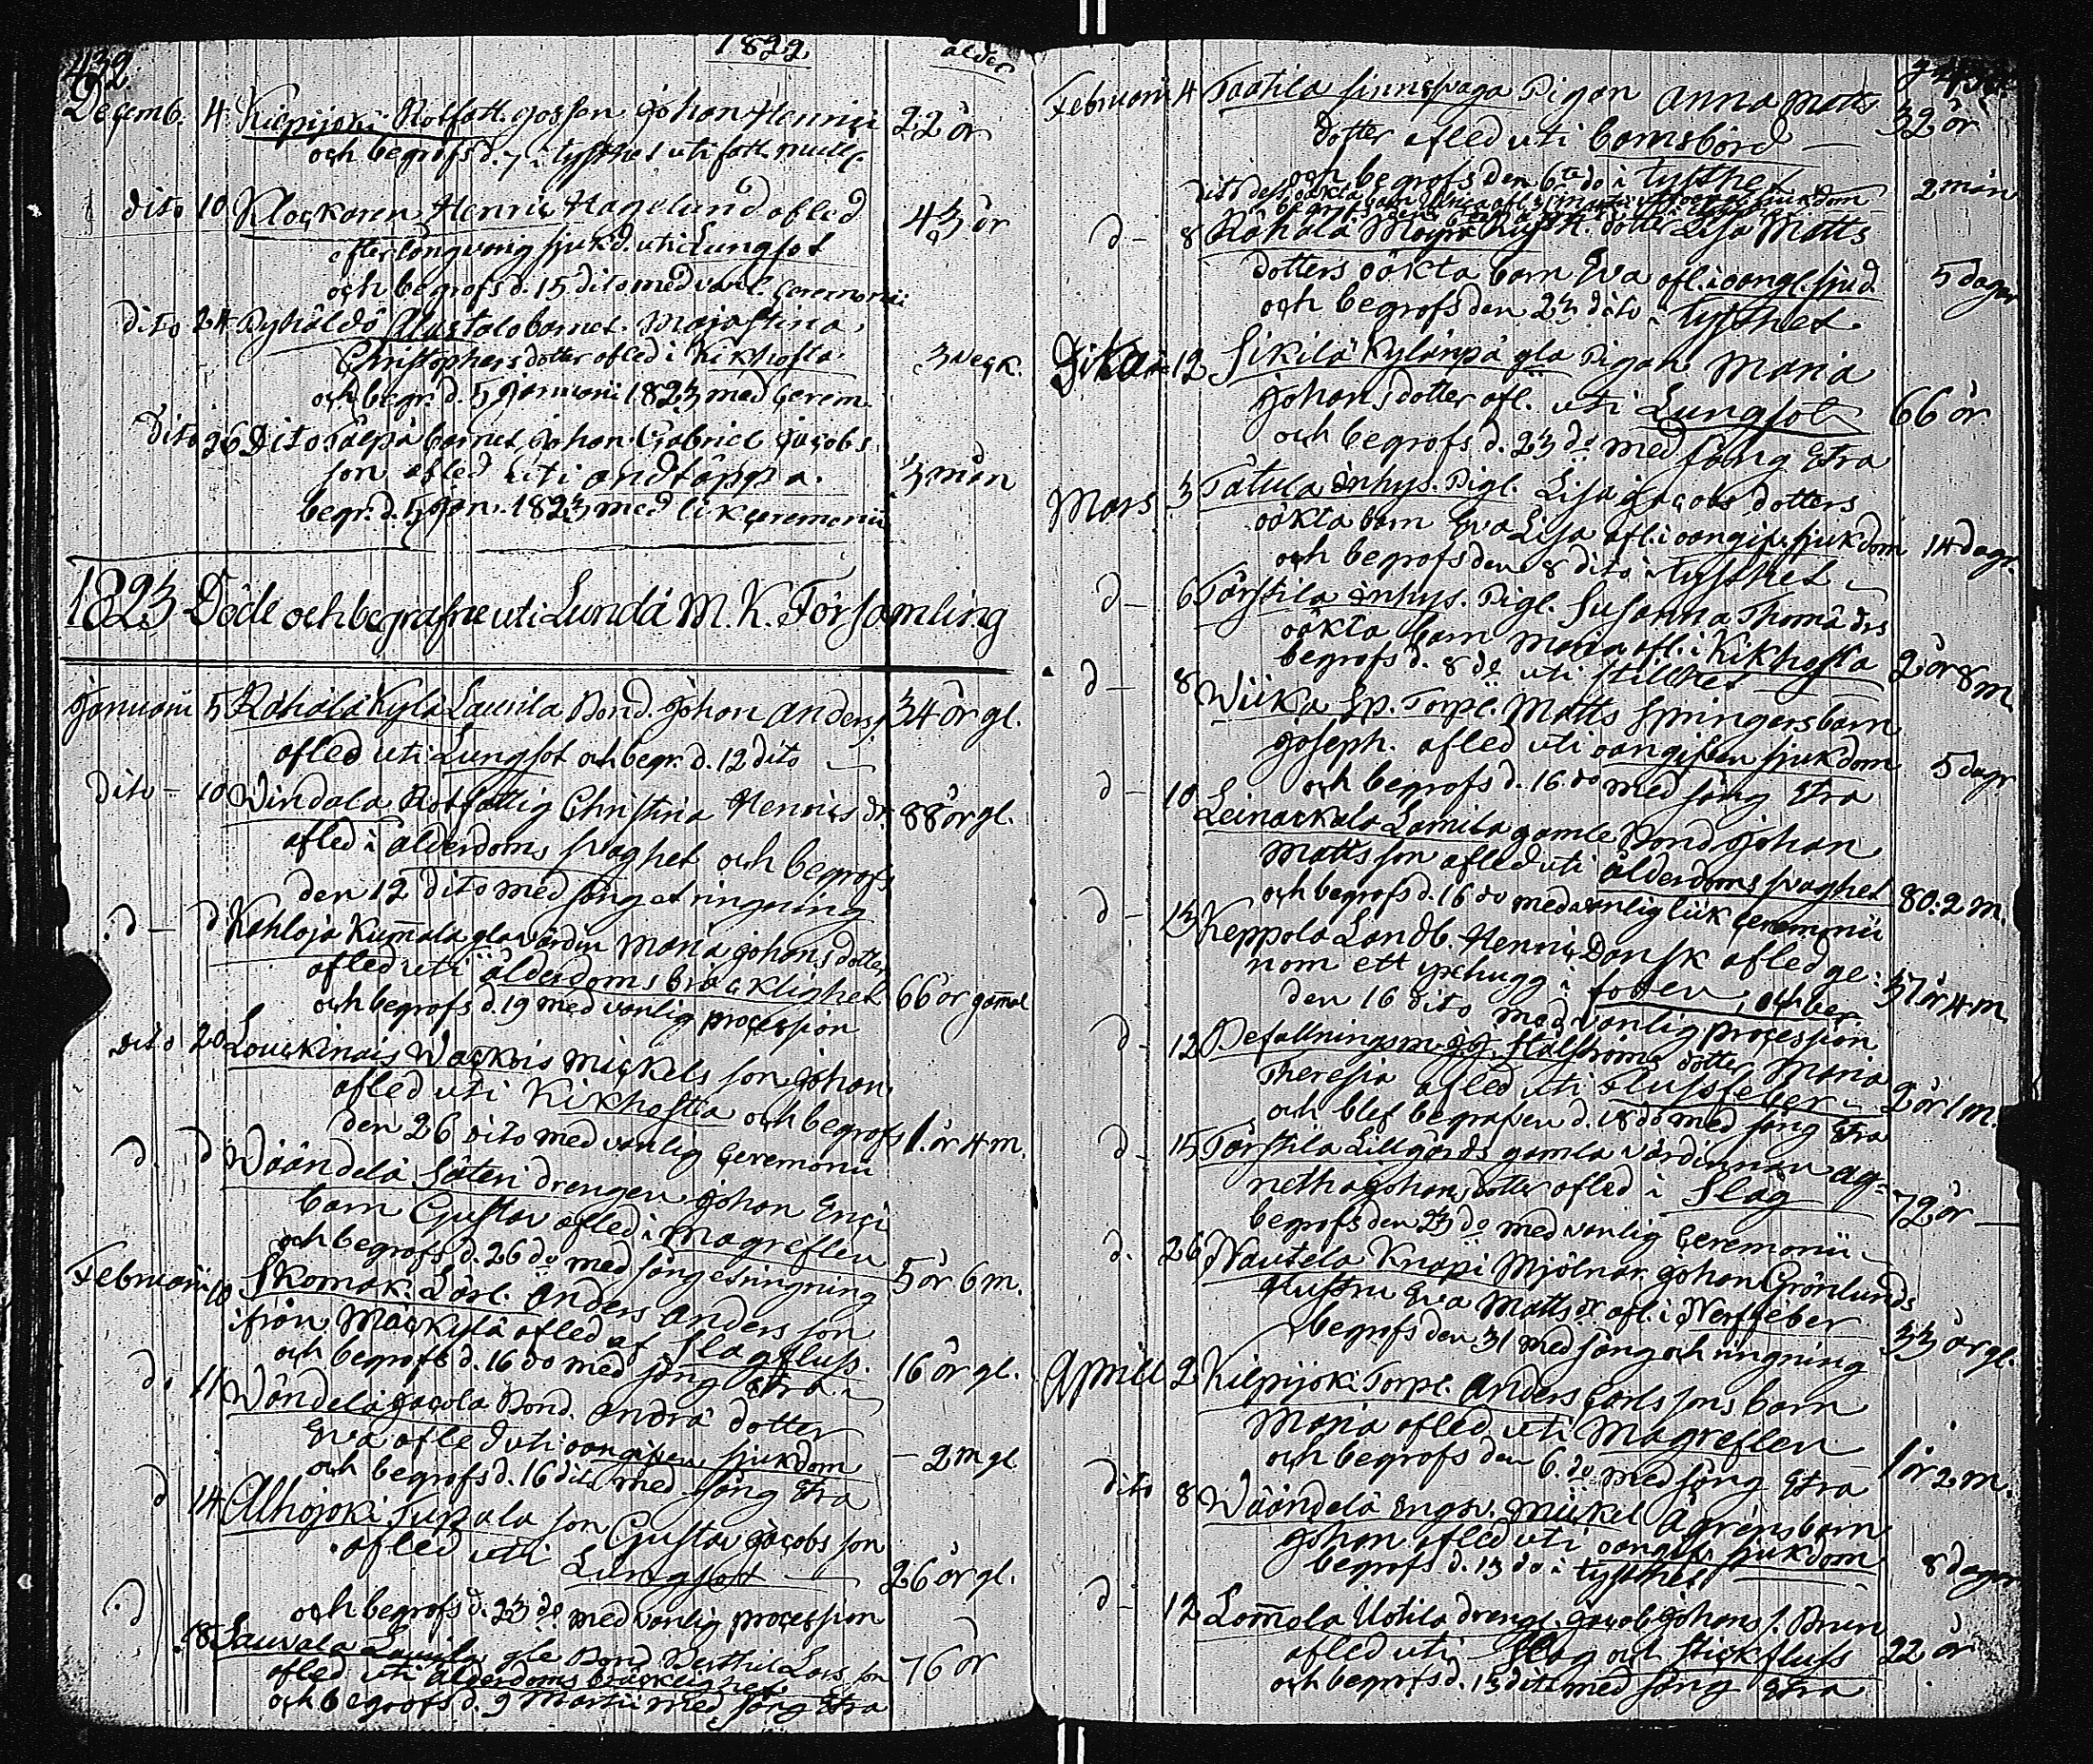 432
1822
ålder
Decemb. 4 Kilpijoki Rotfatt. gossen Johan Henrici 22 år
och begrofs d. 7 i tysthet uti fatt. mull.
dito 10 Klockaren Henric Hagelund afled 43 år
efter långvarig sjukd. uti Lungsot
och begrofs d. 15 dito med vanl. ceremonii
dito 24 Pyhäldö Alastalo barnet Maja Stina
Christophers dotter afled i Kikhosta 3 veck.
och begr. d. 5 Januarii 1823 med cerem.
dito 26 Dito barnet Johan Gabriel Jacobs
son afled uti andtäppa. 3 mån
begr. d. 5 Jan. 1823 med lik ceremonii
1823 Döde och begrafne uti Lundå M. K. Församling
Januarii 5 Råhålå Kylå Laurila Bond. Johan Anders 34 år gl.
afled uti Lungsot och begr. d. 12 dito
dito - 10 Vindala Rotfattig Christina Henrics dr 88 år gl.
afled i ålderdoms svaghet och begrofs
den 12 dito med sång et ringning
d - d Kahloja Kum̄ala gla värdin Maria Johans dotter
afled uti ålderdoms bräcklighet 66 år gam̄al
och begrofs d. 19 med vanlig procession
dito 20 Louckinais Wackois Mickels son Johan
afled uti Kikhosta och begrofs 1. år 4 m.
den 26 dito med vanlig Ceremonii
d. d Wäändelä Säteri drengen Johan Erici
barn Gustav afled i magreflen
och begrofs d. 26 do med sång et ringning 5 år 6 m.
Februarii 10 Skomak. Lärl. Anders Anders son
ifrån Mäckylä afled af Slagfluss.
och begrofs d. 16 do med sång Etra 16 år gl.
do 11 Wändelä Jacola Bond. Andrä dotter
Eva afled uti oangifven sjukdom - 2 m gl
och begrofs d. 16 dito med sång Etra
d 14 Alhojoki Tupala son Gustav Jacobs son
afled uti Lungsot 26 år gl.
och begrofs d. 23 do med vanlig procession
d 18 Sauvala Laurila gle Bond Berthil Lars son 76 år
afled uti ålderdoms bräcklighet
och begrofs d. 9 Martii med sång Etra
Februarii 4 Taatila sinnesvaga Pigan Anna Matts 32 år
dotter afled uti barnsbörd
och begrofs den 6te do i tysthet
2 mån
d - 8 Råhålå dotter Lisa Matts
dotters oäkta barn Eva afl. i oangl. sjukd. 5 dagar
och begrofs den 23 dito i tysthet.
Dito 12 Sikilä Kylänpä gla Pigan Maria
Johans dotter afl. uti Lungsot 66 år.
och begrofs d. 23 do med sång Etra
Mars 3 Tätula inhys. Pigl. Lisa Jacobs dotters
oäkta barn Eva Lisa afl. i oangif. sjukdom 14 dagr.
och begrofs den 8 dito i tysthet
d - 6 Tärstila inhys. Pigl. Susanna Thomä drs
oäkta barn Maria afl. i Kikhosta 2 år 8 m.
begrofs d. 8 do uti stillhet
d - 8 Wiika Sp. Torp. Matts Springers barn
Joseph. afled uti oangifven sjukdom 5 dagr
och begrofs d. 16 do med sång Etra
d - 10 Leinackala Lamila gamle Bond Johan
Matts son afled uti ålderdoms svaghet 80: 2 m.
och begrofs d. 16 do med vanlig lik ceremonii
d - 13 Keppola Landb. Henric Dansk afled ge-
nom ett yxhugg i foten, och beg. 37 år 4 m
den 16 dito med vanlig procession
d - 12 Befallningsm. dotter Maria
Theresia afled uti flussfeber 2 år 1 m.
och blef begrafven d. 18 do med sång Etra
d - 15 Tärstila Lillgårds gamla värdinnan Ag-
netha Johans dotter afled i Slag 72 år
begrofs den 23 do med vanlig Ceremonii
d. 26 Nautela Knapi Mjölnar. Johan Grönlunds
Hustru Eva Matts dr afl. i Nerffeber 33 år gl.
begrofs den 31 med sång och ringning
Aprill 2 Kilpijoki Torp. Anders Carls sons barn
Maria afled uti Magreflen 1 år 2 m.
och begrofs den 6. do med sång Etra
dito 8 Wäändelä Mickel Ågrens barn
Johan afled uti oangif. sjukdom 8 dagar
begrofs d. 13 do i tysthet
d - 12 Lom̄ola Uotila drengl. Jacob Johans s. Brun
afled uti Slag och stickfluss 22 år
och begrofs d. 13 dito med sång Etra